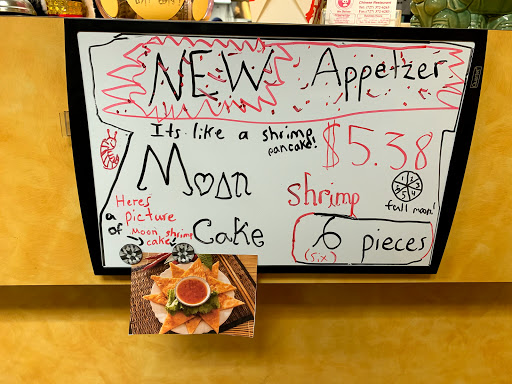 NEW Appetzer
Its like a shrimp pancake!
$5.38
Moan
shrimp
Heres
a picture
of moon shrimp
cake
Cake
full moon!
6 pieces
(six)